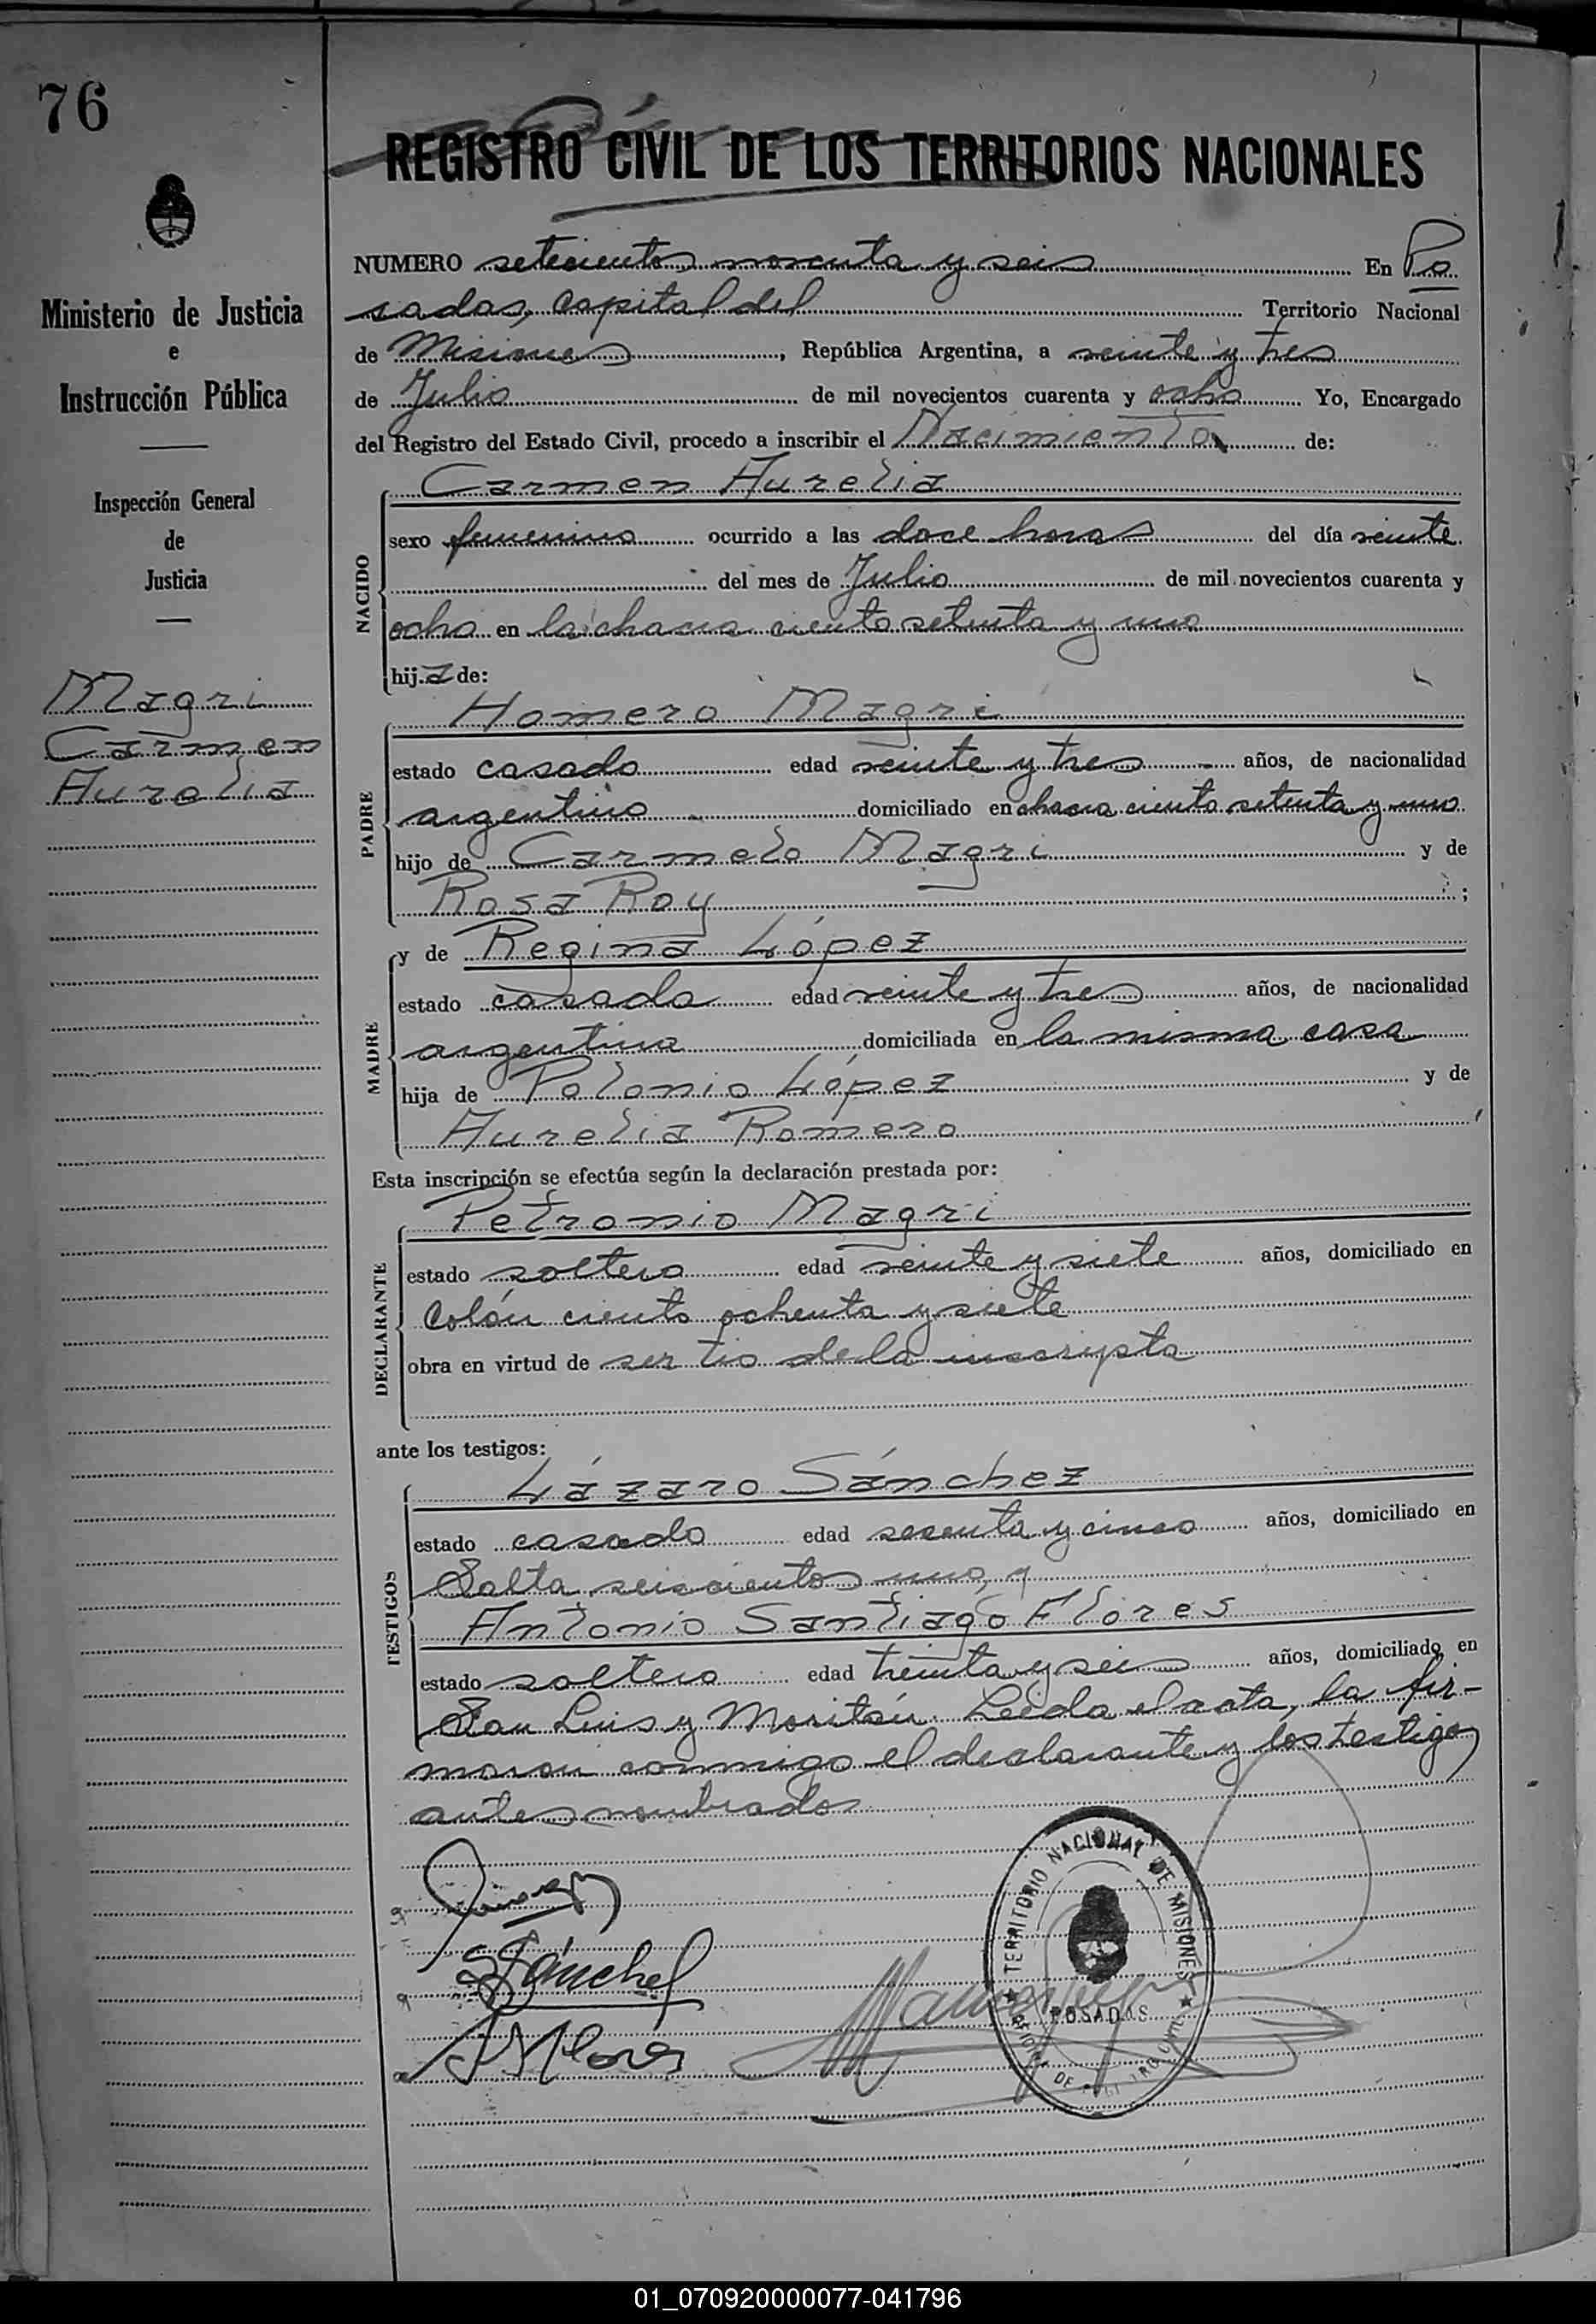 76
REGISTRO CIVIL DE LOS TERRITORIOS NACIONALES
Ministerio de Justicia
e
Instrucción Pública
Inspección General
de
Justicia
Magri
Carmen
Aurelia
NUMERO setecientos noventa y seis En Po
sadas, Capital del Territorio Nacional
de Misiones, República Argentina, a veinte y tres
de Julio de mil novecientos cuarenta y ocho Yo, Encargado
del Registro del Estado Civil, procedo a inscribir el Nacimiento de:
NACIDO
Carmen Aurelia
sexo femenino ocurrido a las doce horas del día veinte
del mes de Julio de mil novecientos cuarenta y
ocho en la chacra ciento setenta y uno
hija de:
PADRE
Homero Magri
estado casado edad veinte y tres años, de nacionalidad
argentino domiciliado en chacra ciento setenta y uno
hijo de Carmelo Magri y de
Rosa Roy ;
MADRE
y de Regina López
estado casada edad veinte y tres años, de nacionalidad
argentina domiciliada en la misma casa
hija de Polonio López y de
Aurelia Romero
Esta inscripción se efectúa según la declaración prestada por:
DECLARANTE
Petronio Magri
estado soltero edad veinte y siete años, domiciliado en
Colón ciento ochenta y siete
obra en virtud de ser tio de la inscripta
ante los testigos:
TESTIGOS
Lázaro Sánchez
estado casado edad sesenta y cinco años, domiciliado en
Salta seiscientos uno, y
Antonio Santiago Flores
estado soltero edad treinta y seis años, domiciliado en
San Luis y Moritán. Leída el acta, la fir-
maron conmigo el declarante y los testigos
antes nombrados
Sánchez
Flores
TERRITORIO NACIONAL DE MISIONES
POSADAS
01_070920000077-041796